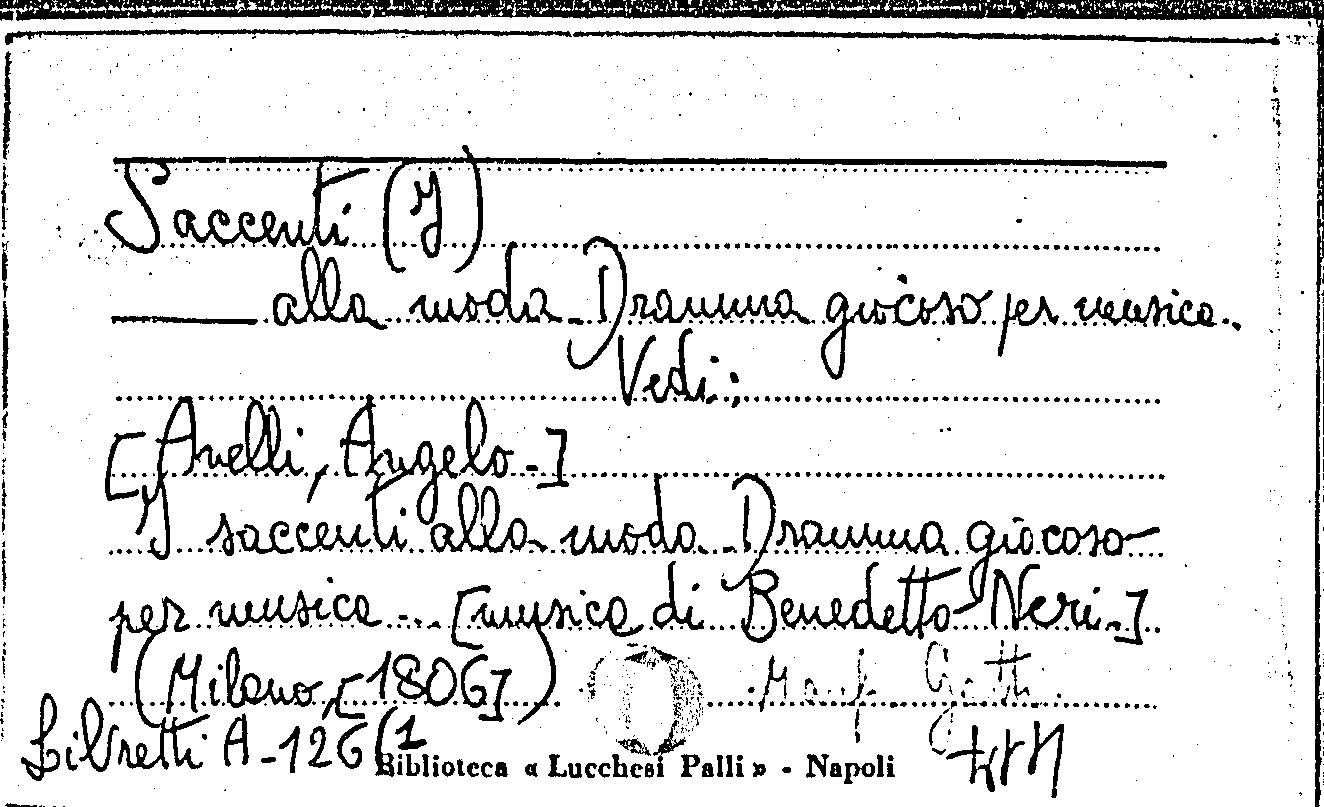 Saccenti (I)
——— alla moda. Dramma giocoso per musica..
Vedi:
[Anelli, Angelo.]
I saccenti alla moda. Dramma giocoso
per musica.... [musica di Benedetto Neri.]
(Milano, [1806])
Libretti A-126(1
Biblioteca « Lucchesi Palli » - Napoli